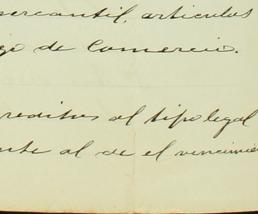 mercantil, articulos
go de Comercio.
reditos al tipo legal
nte al de el vencimie